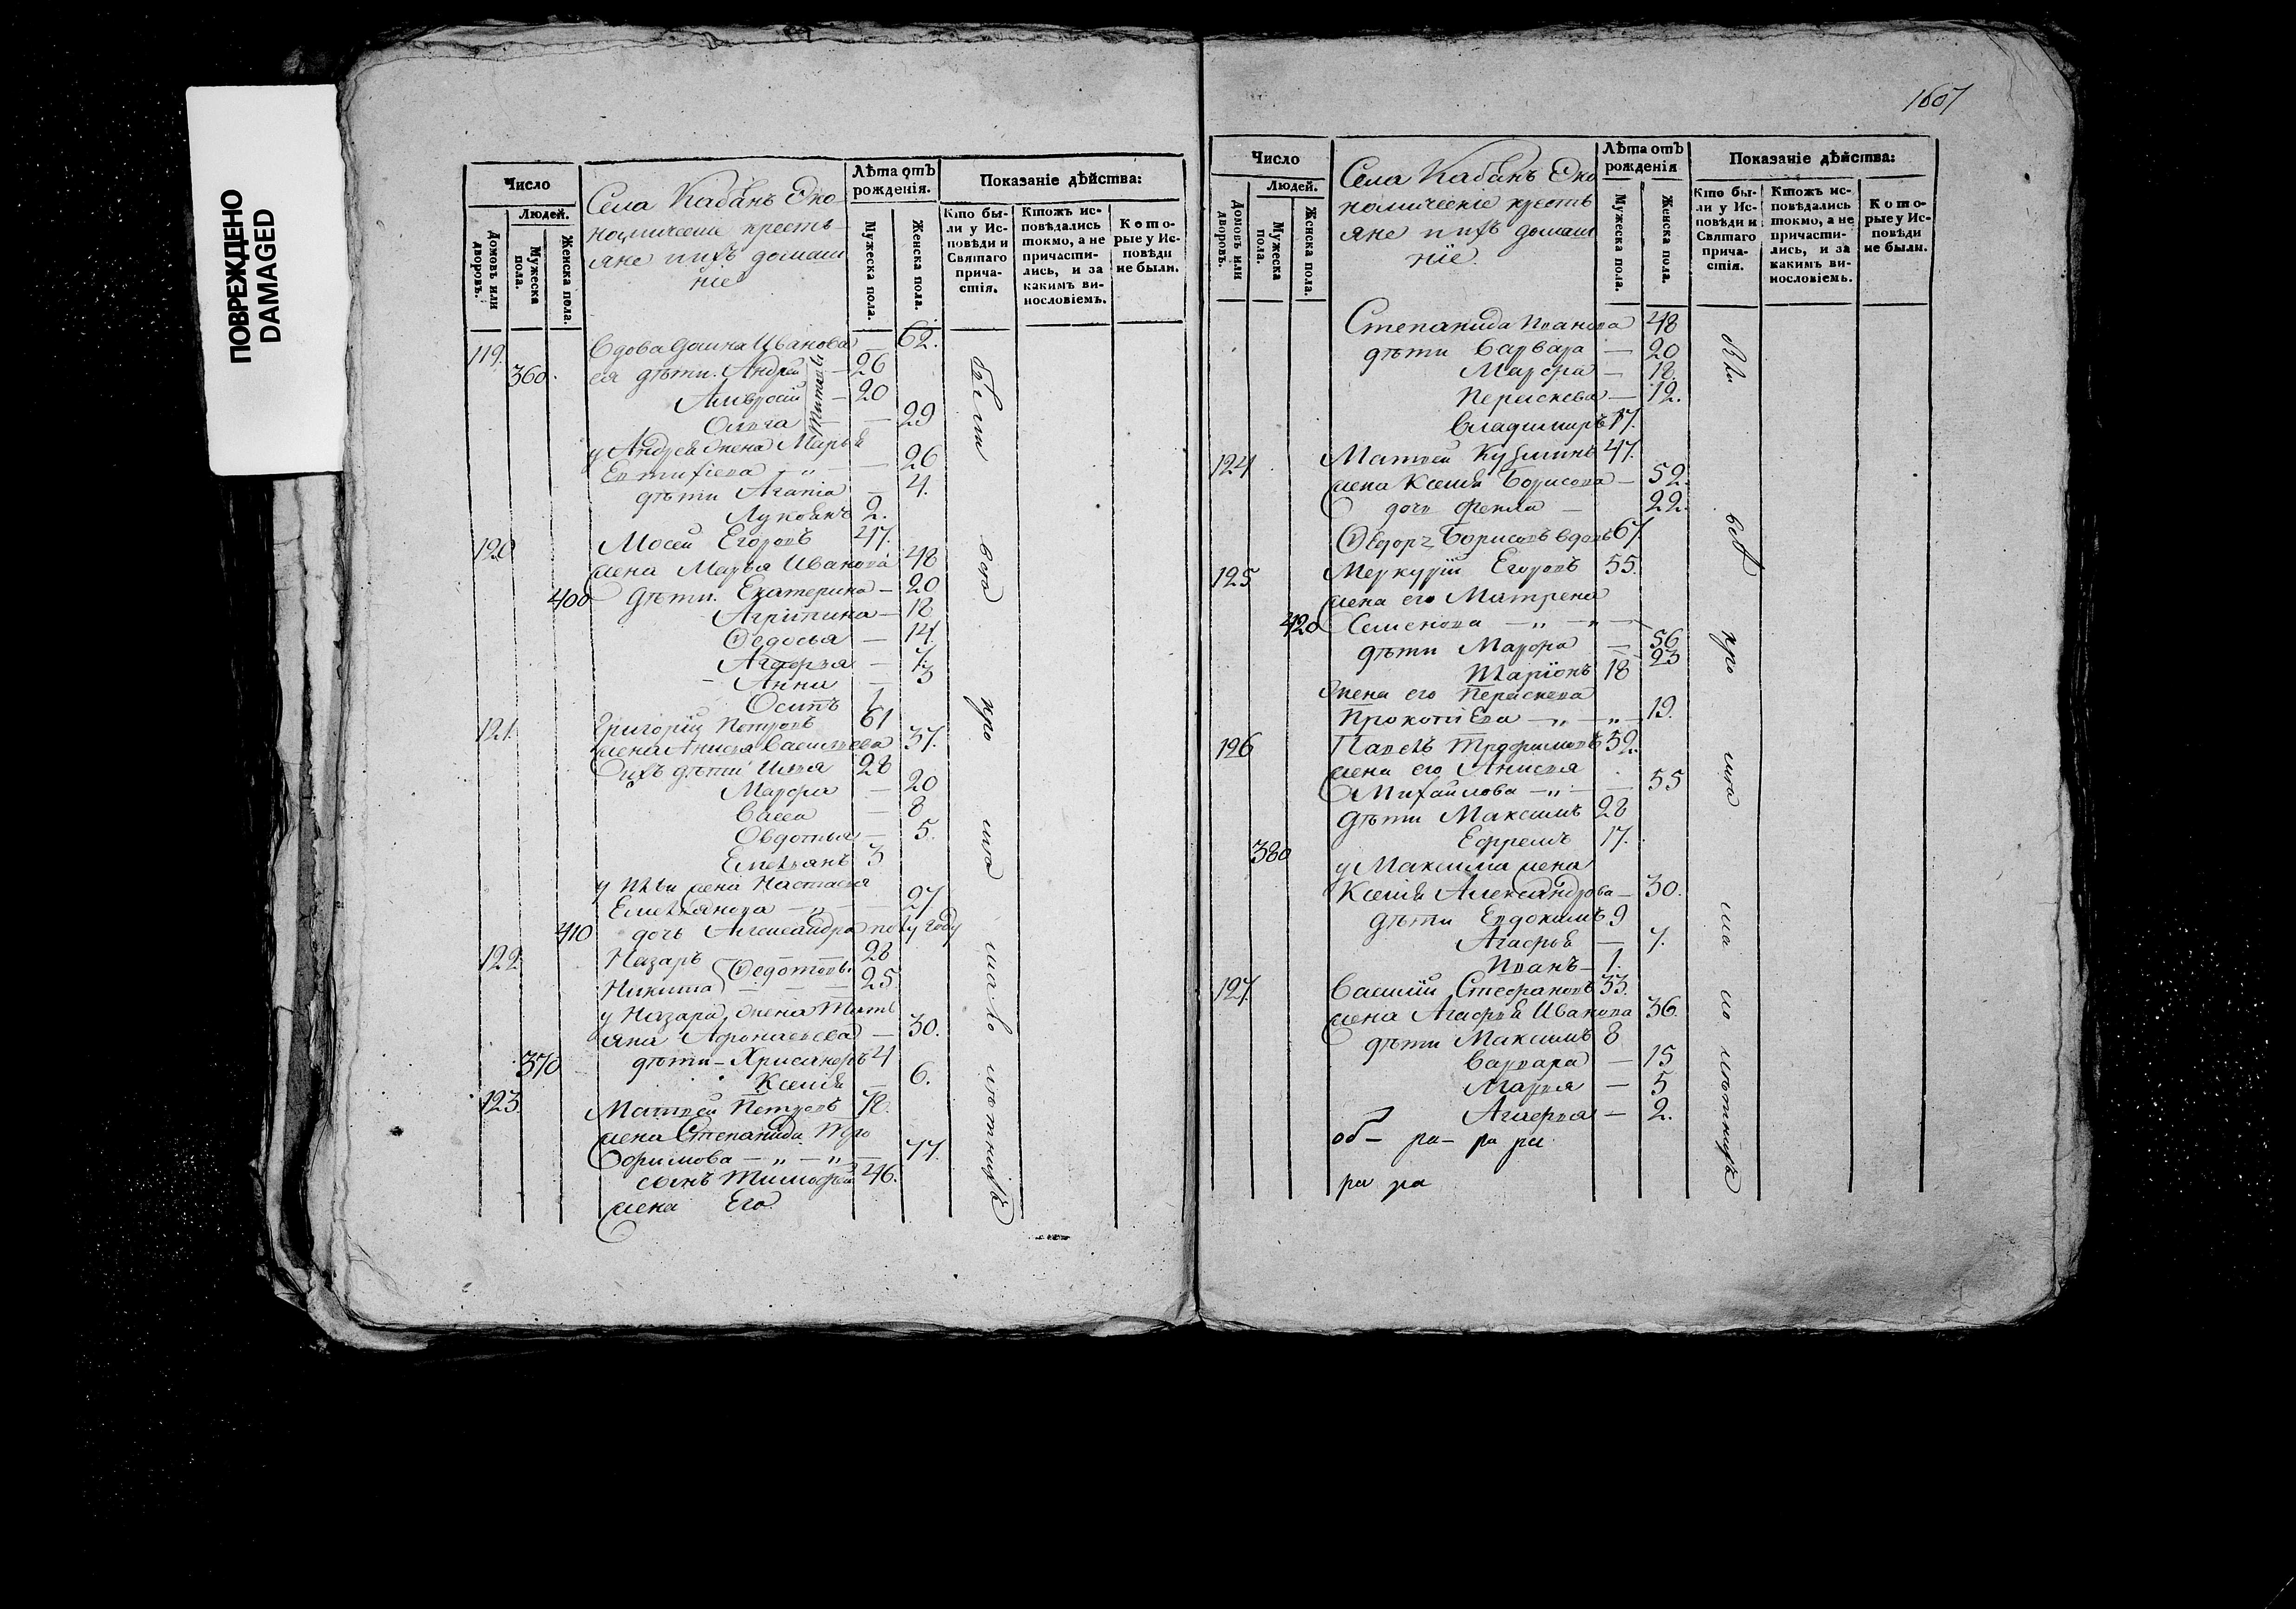 ПОВРЕЖДЕНО
DAMAGED
Число
Людей.
Домовъ или дворовъ.
Мужеска пола.
Женска пола.
Села Кабанъ Эко
номическіе крестья
яне ихъ домаш
ніе
Лѣта отъ рожденія.
Мужеска пола.
Женска пола.
Показаніе дѣйства:
Кто бы-
ли у Ис-
повѣди и
Святаго
прича-
стія.
Ктожъ ис-
повѣдались
токмо, а не
причасти-
лись, и за
какимъ ви-
нословіемъ.
Кото-
рые у Ис-
повѣди
не были.
119. Вдова Иванова — 62.
360. ея дѣти Андрей — 26
Амвросій — 20
Ольга — 29
у Андрея жена Марья
Евтихіева — „ — 26
дѣти Агапіа — 4.
Лукоянъ 2.
120 Мосей Егоровъ 47.
жена Марья Иванова 48
400 дѣти. Екатерина — 20
Агрипина — 18
Ѳедосья — 14.
Агафья — 7.
Анна — 3
Осипъ 1
121. Григорій Петровъ 61
жена Анисья Васильева 37.
ихъ дѣти Илья 28
Марфа — 20
Васса — 8
Овдотья — 5.
Емельянъ 3
у Ильи жена Настасья
Емельянова — „ — 27.
410 дочь Александра полу году
122 Назаръ — 28
Никита Ѳедотовы — 25.
у Назара жена Тать
яна Афонасьева — 30.
370 дѣти — Хрисанфъ 4
Ксенія — 6.
123. Матвей Петровъ 72.
жена Степанида Тро
фимова — „ — „ — 77.
сынъ Тимофей 46.
жена Его
были
все
про
шла
мало
лѣтнихъ
1607
Число
Людей.
Домовъ или дворовъ.
Мужеска пола.
Женска пола.
Села Кабанъ Эко
номическіе кресть
яне ихъ домаш
ніе.
Лѣта отъ рожденія
Мужеска пола.
Женска пола.
Показаніе дѣйства:
Кто бы-
ли у Ис-
повѣди и
Святаго
прича-
стія.
Ктожъ ис-
повѣдались
токмо, а не
причасти-
лись, и за
какимъ ви-
нословіемъ.
Кото-
рые у Ис-
повѣди
не были.
Степанида Иванова 48
дѣти Варвара — 20
Марфа — 18.
Пераскева — 12.
Владимиръ 17.
124 Матвей Кузминъ 47.
жена Ксенія Борисова — 52.
дочь Фекла — 22.
Ѳедоръ Борисовъ вдовъ 67.
125 Меркурій Егоровъ 55.
жена его Матрена
420 Семенова — „ — „ — 56
дѣти Марфа — 23
Иларіонъ 18
жена его Пераскева
Прокопіева — „ — „ — 19.
126 Павелъ Трофимовъ 52.
жена его Анисья
Михайлова — „ — 55
дѣти Максимъ 28
380 Ефремъ 17.
у Максима жена
Ксенія Александрова — 30.
дѣти Евдокимъ 9
Агафья — 7.
Иванъ — 1.
127. Василій Стефановъ 33.
жена Агафья Иванова 36.
дѣти Максимъ 8
Варвара — 15
Марья — 5
Агафья — 2.
об — ра — ра ра
ра ра
все
про
ма
ло
лѣтнихъ